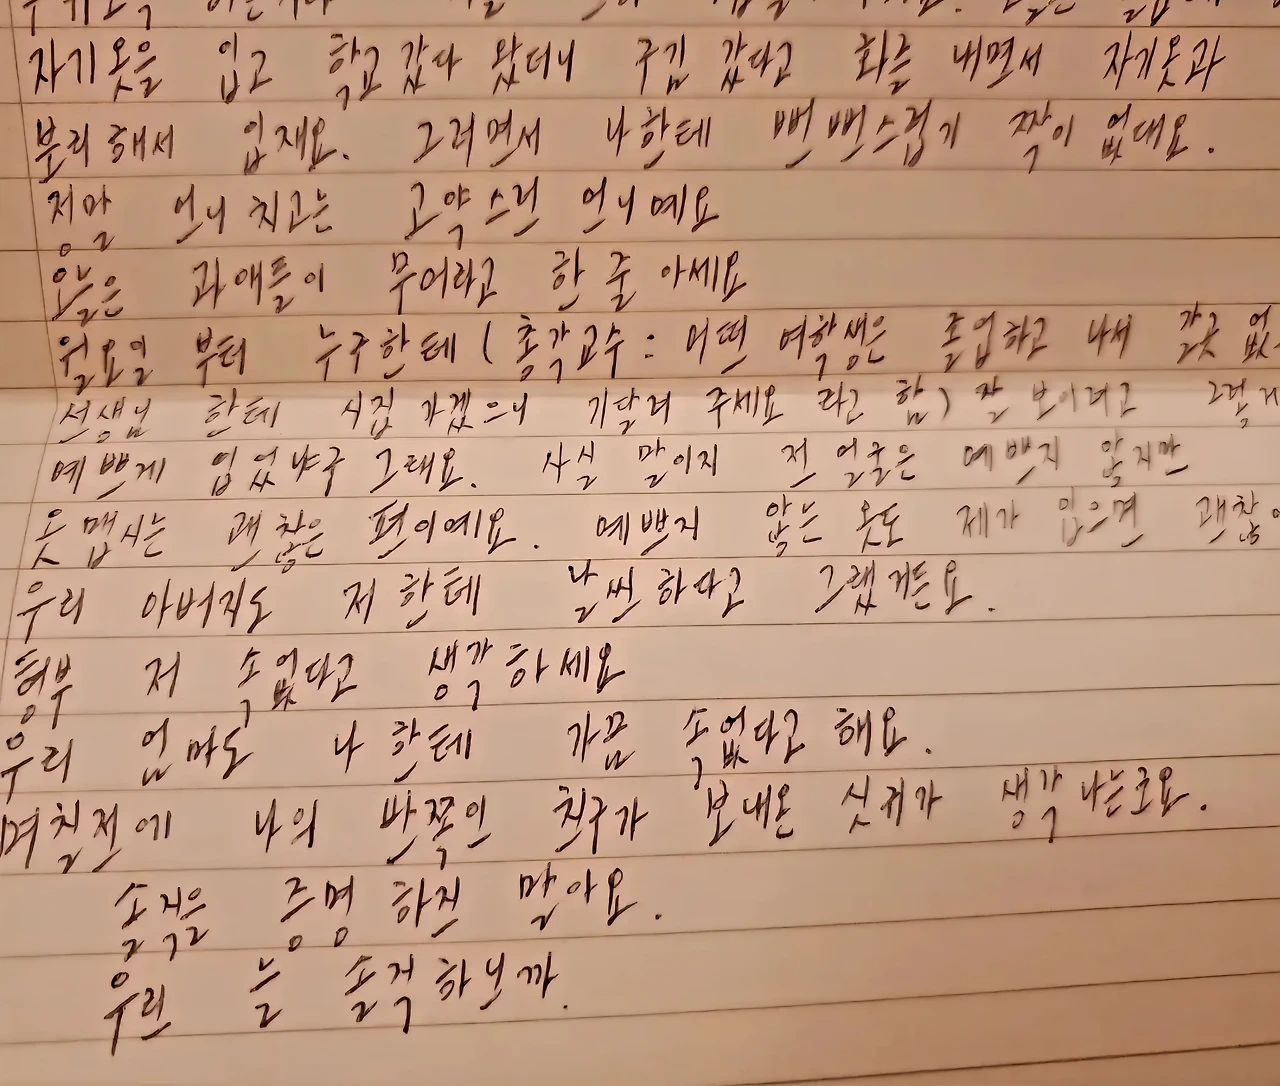 자기옷을 입고 학교 갔다 왔더니 구김 갔다고 화를 내면서 자기옷과
분리해서 입재요. 그러면서 나한테 뻔뻔스럽기 짝이 없대요.
정말 언니 치고는 고약스런 언니예요
오늘은 과애들이 무어라고 한 줄 아세요
월요일 부터 누구한테 (총각교수: 어떤 여학생은 졸업하고 나서 갈곳 없
선생님 한테 시집 가겠으니 기달려 주세요 라고 함) 잘 보이려고 그렇게
예쁘게 입었냐구 그래요. 사실 말이지 전 얼굴은 예쁘지 않지만
옷 맵시는 괜찮은 편이예요. 예쁘지 않는 옷도 제가 입으면 괜찮
우리 아버지도 저 한테 날씬 하다고 그랬거든요.
형부 저 속없다고 생각하세요
우리 엄마도 나 한테 가끔 속없다고 해요.
며칠전에 나의 반쪽인 친구가 보내온 싯귀가 생각 나는로요.
솔직을 증명 하진 말아요.
우린 늘 솔직하니까.